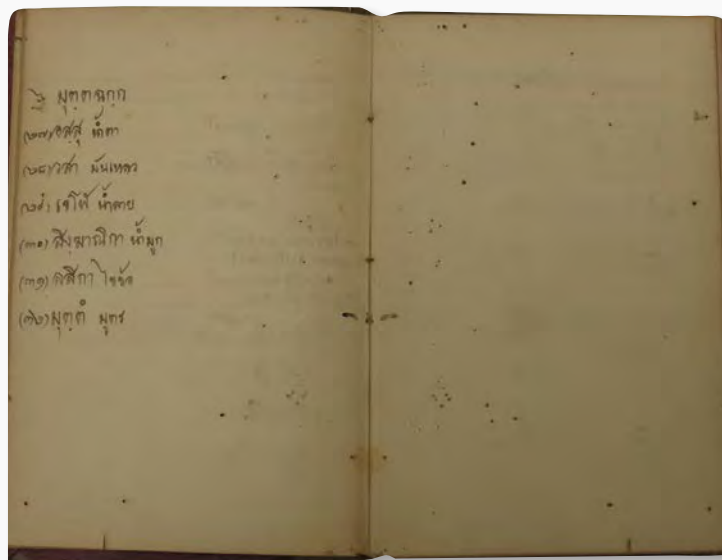 มุตฺตฉกฺก
(๒๗) อสฺสุ น้ำตา
(๒๘) วสา มันเหลว
(๒๙) เขโฬ น้ำลาย
(๓๐) สิงฺฆาณิกา น้ำมูก
(๓๑) ลสิกา ไขข้อ
(๓๒) มุตฺตํ มูตร